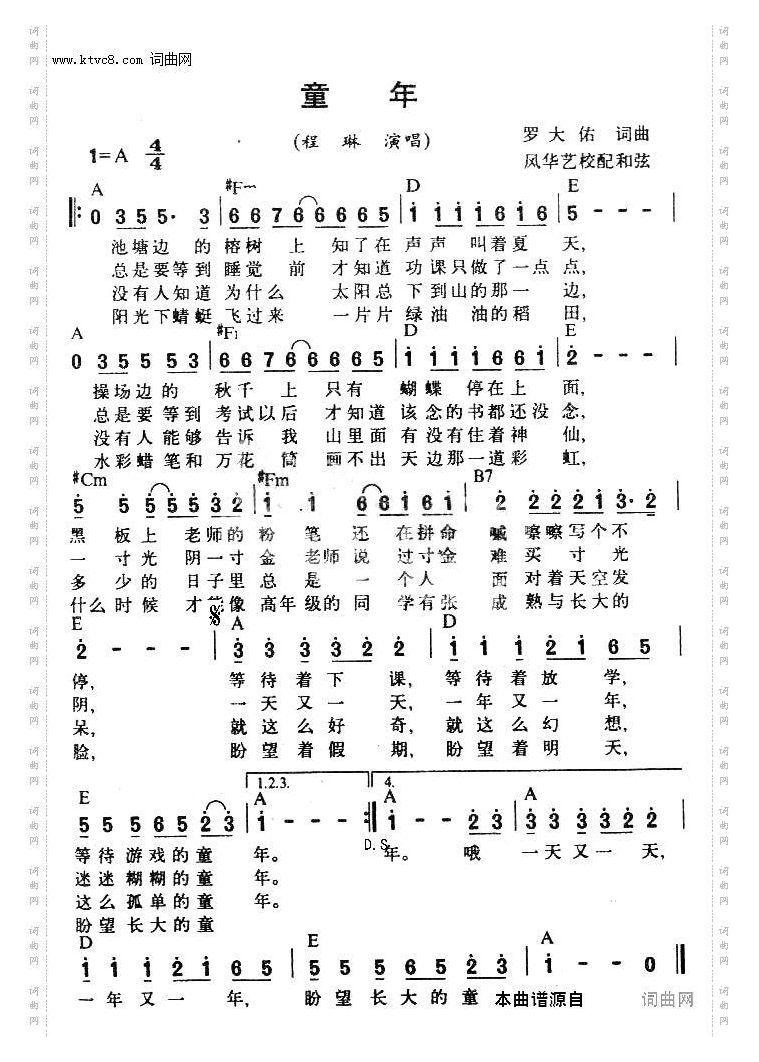 www.ktvc8.com 词曲网
童 年
(程 琳 演唱)
罗大佑 词曲
1=A 4/4
风华艺校配和弦
A #F~ D E
0 3 5 5· 3 | 6 6 7 6 6 6 6 6 5 | 1 1 1 1 6 1 6 | 5 - - - |
池塘边 的 榕树 上 知了在 声声 叫着夏 天,
总是要等到 睡觉 前 才知道 功课只做了一点点,
没有人知道 为什么 太阳总 下到山的那一 边,
阳光下蜻蜓 飞过来 一片片绿油 油的稻 田,
A #F D E
0 3 5 5 5 3 | 6 6 7 6 6 6 6 6 5 | 1 1 1 1 6 6 1 | 2 - - - |
操场边的 秋千 上 只有 蝴蝶 停在上 面,
总是要等到 考试以后 才知道 该念的书都还没念,
没有人能够 告诉 我 山里面 有没有住着神 仙,
水彩蜡笔和 万花 筒 画不出 天边那一道彩 虹,
#Cm #Fm B7
5 5 5 5 5 5 3 2 | 1 1 6 6 1 6 1 | 2 2 2 2 1 3· 2 |
黑 板上 老师的 粉 笔 还 在拼命 嘁 嚓嚓写个不
一 寸光 阴一寸 金 老师 说 过寸金 难 买 寸 光
多 少的 日子里 总 是 一 个人 面 对着天空发
什么时候 才能像 高年级的 同 学有张 成 熟与长大的
E A D
2 - - - | 3 3 3 3 2 2 | 1 1 1 2 1 6 5 |
停, 等待着下 课, 等待着放 学,
阴, 一天又一 天, 一年又一 年,
呆, 就这么好 奇, 就这么幻 想,
脸, 盼望着假 期, 盼望着明 天,
1.2.3. 4.
E A A A
5 5 5 6 5 2 3 | 1 - - - :| 1 - - 2 3 | 3 3 3 3 2 2 |
D.S
等待游戏的童 年。 年。 哦 一天又一天,
迷迷糊糊的童 年。
这么孤单的童 年。
盼望长大的童
D E A
1 1 1 2 1 6 5 | 5 5 5 6 5 2 3 | 1 - - 0 ‖
一年又一 年, 盼望长大的童 本曲谱源自 词曲网